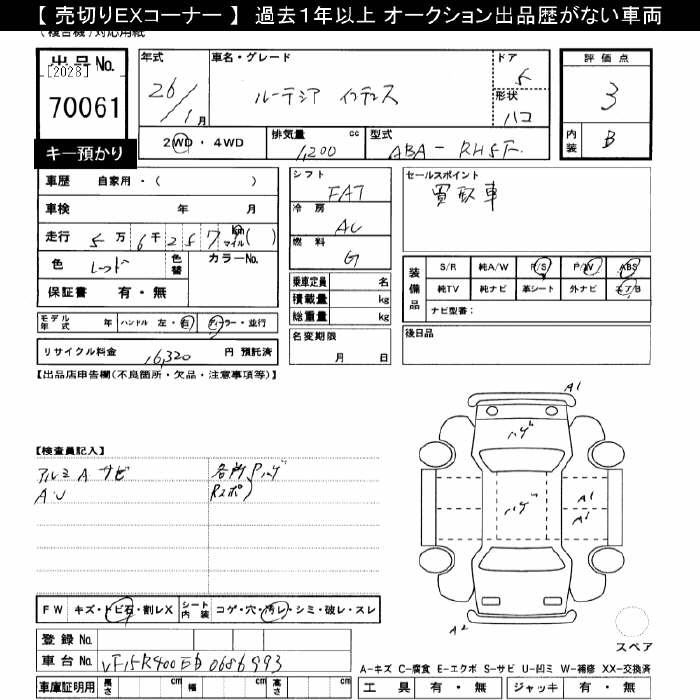 【 売切りEXコーナー 】 過去1年以上 オークション出品歴がない車両
(複合機)対応用紙
出品No.
[2028]
70061
キー預かり
年式 車名・グレード ドア
26/1月 ルーテシア インテンス 5
形状
ハコ
2WD・4WD 排気量 cc 型式
1,200 ABA-RH5F
評価点
3
内装 B
車歴 自家用・( )
車検 年 月
走行 5万6千257 km マイル ( )
色 レッド 色替 カラーNo.
保証書 有・無
シフト
FAT
冷房
AC
燃料
G
乗車定員 名
積載量 kg
総重量 kg
セールスポイント
買取車
装備品
S/R 純A/W P/S P/W ABS
純TV 純ナビ 革シート 外ナビ エア/B
ナビ型番:
モデル年式 年 ハンドル 左・右 ディーラー・並行
リサイクル料金 16,320 円 預託済
名変期限
月 日
後日品
【出品店申告欄(不良箇所・欠品・注意事項等)】
【検査員記入】
アルミ A サビ 各所Pハゲ
AU Rスポ
A1
ハゲ
ハゲ
A1
A1
A2
FW キズ・トビ石・割レX シート内装 コゲ・穴・汚レ・シミ・破レ・スレ
スペア
登録No.
車台No. VF15R400EB0686993
車庫証明用 長さ cm 幅 cm 高さ cm
A-キズ C-腐食 E-エクボ S-サビ U-凹ミ W-補修 XX-交換済
工具 有・無 ジャッキ 有・無